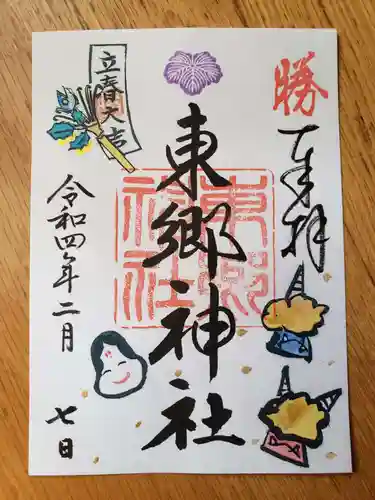 勝
奉拝
東郷神社
東郷
神社
立春大吉
令和四年二月
七日